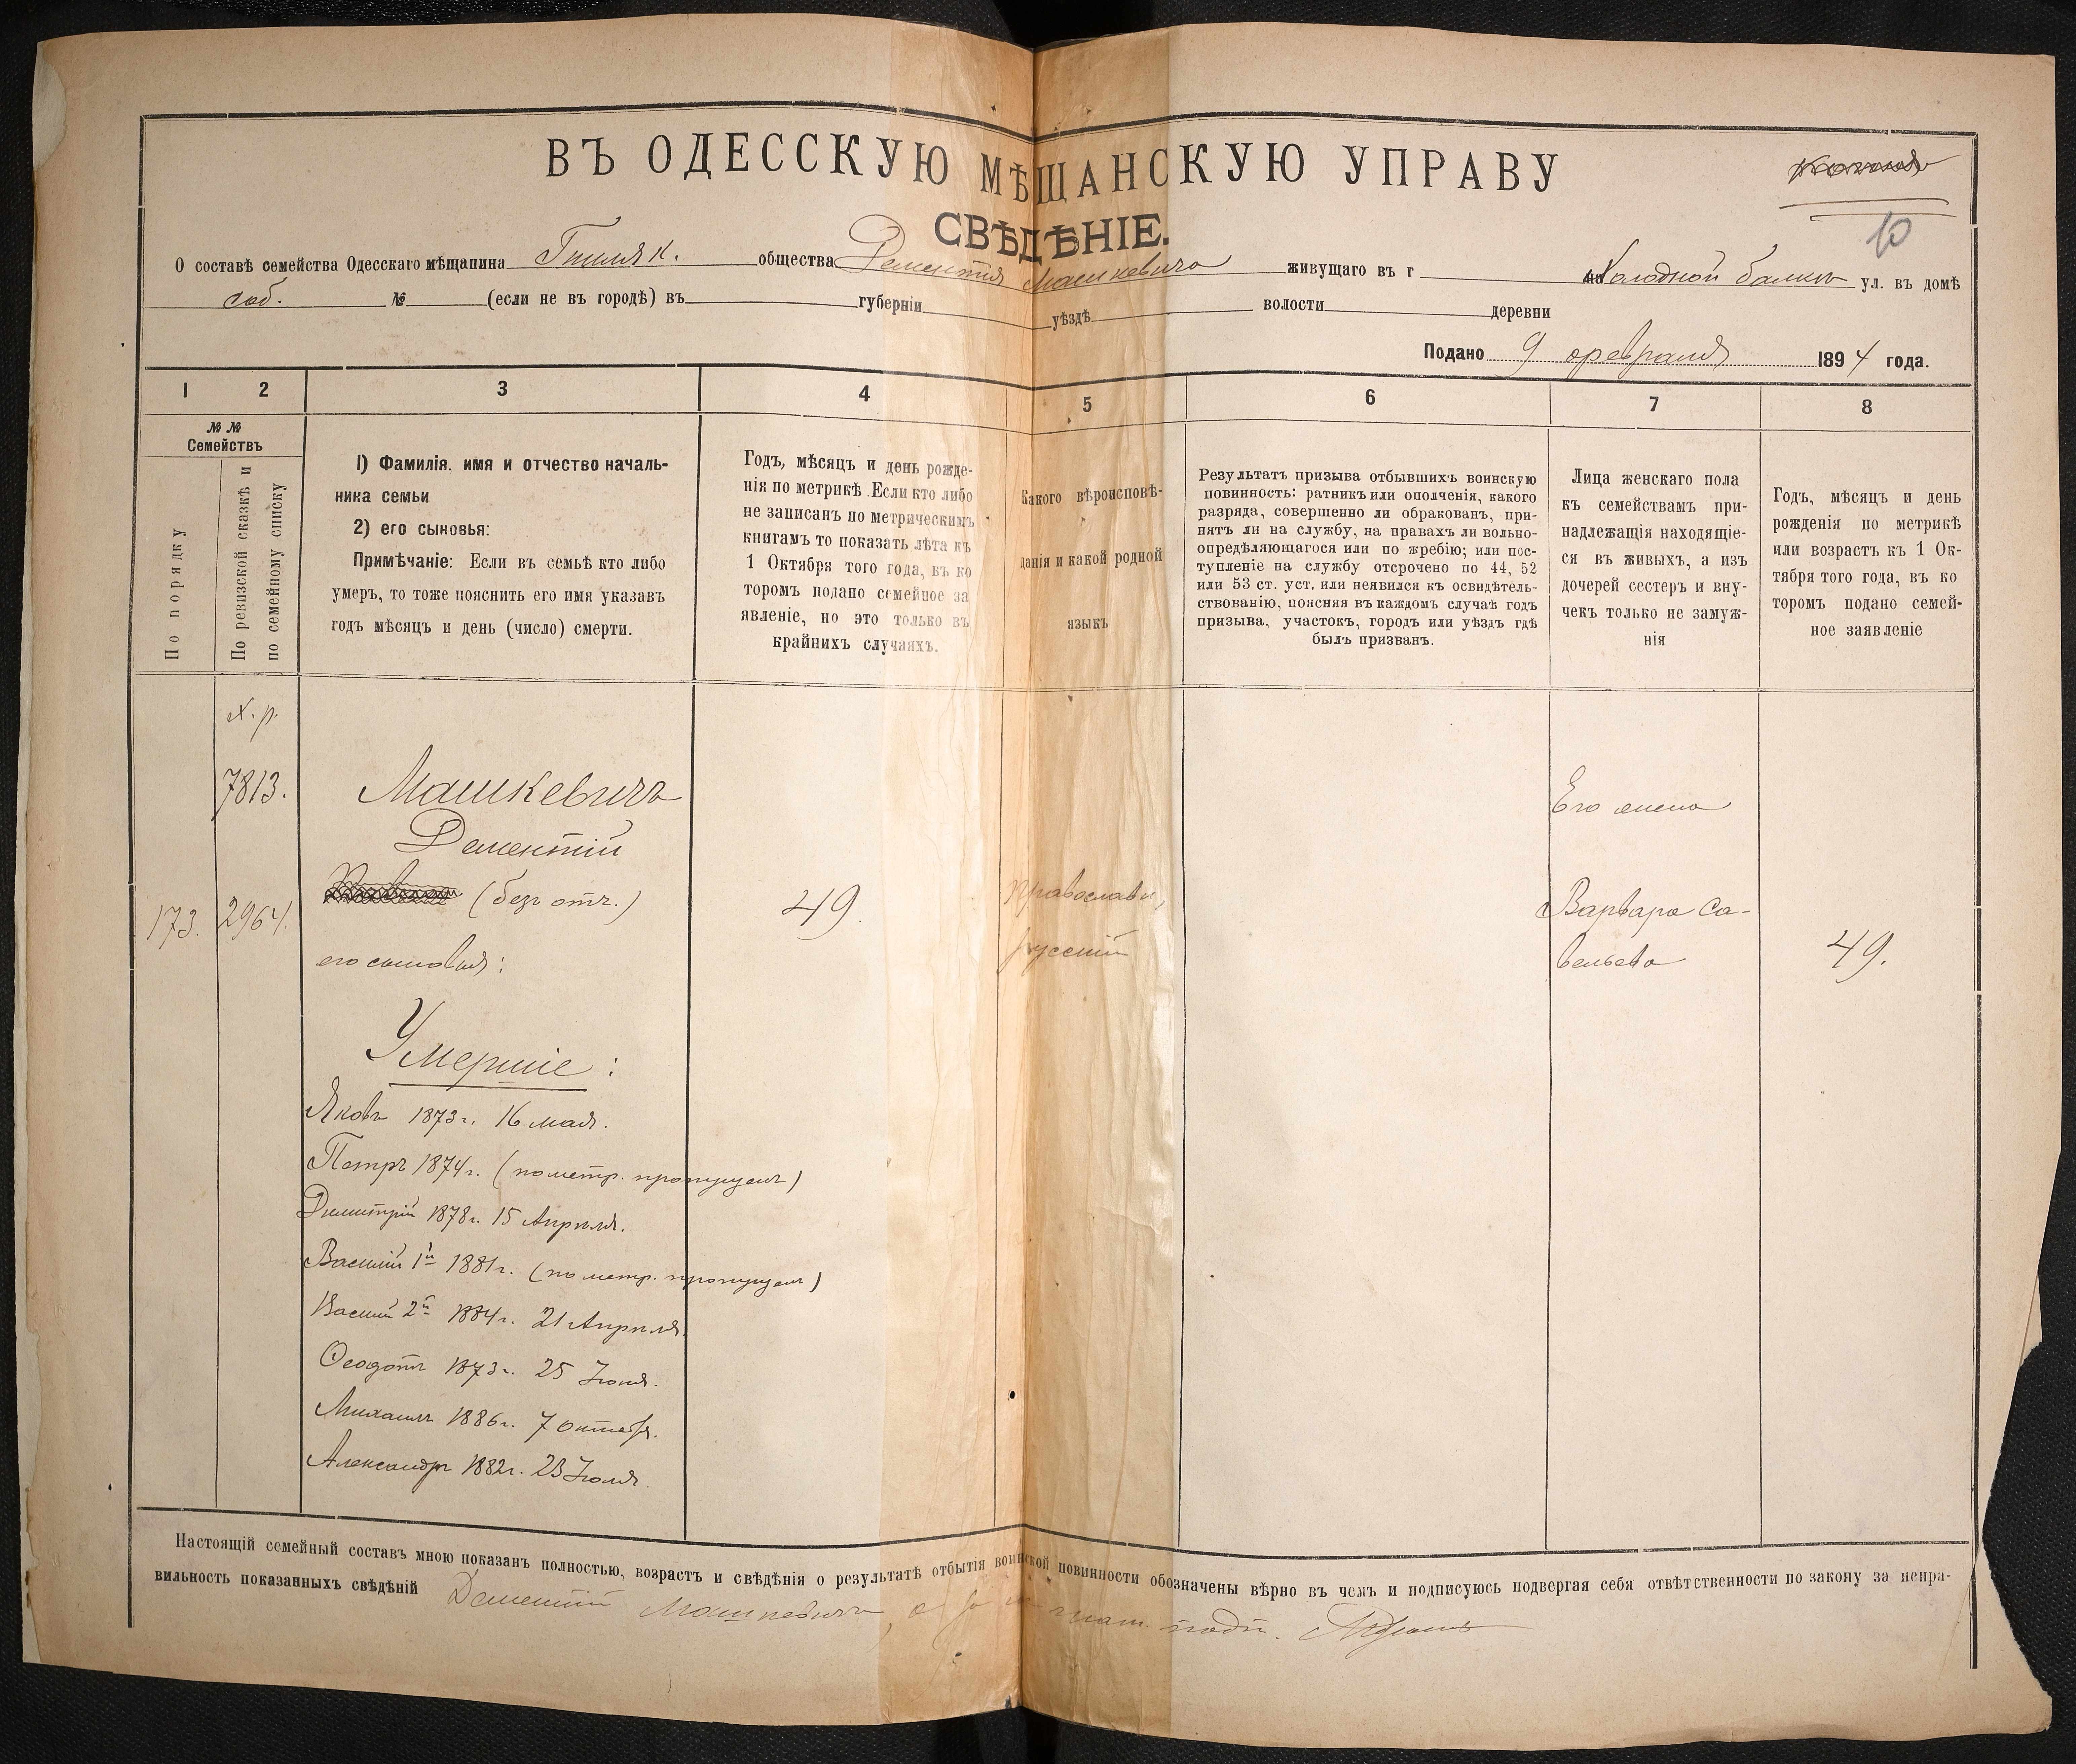 ВЪ ОДЕССКУЮ МѢЩАНСКУЮ УПРАВУ
СВѢДѢНІЕ.
10
О составѣ семейства Одесскаго мѣщанина Гиляк. общества Дементія Машкевича живущаго въ г на Холодной балкѣ ул. въ домѣ
соб. № (если не въ городѣ) въ губерніи уѣздѣ волости деревни
Подано 9 февраля 1894 года.
1 2 3 4 5 6 7 8
№ №
Семействъ
По порядку
По ревизской сказкѣ и
по семейному списку
1) Фамилія, имя и отчество началь-
ника семьи
2) его сыновья:
Примѣчаніе: Если въ семьѣ кто либо
умеръ, то тоже пояснить его имя указавъ
годъ мѣсяцъ и день (число) смерти.
Годъ, мѣсяцъ и день рожде-
нія по метрикѣ. Если кто либо
не записанъ по метрическимъ
книгамъ то показать лѣта къ
1 Октября того года, въ ко
торомъ подано семейное за
явленіе, но это только въ
крайнихъ случаяхъ.
Какого вѣроисповѣ-
данія и какой родной
языкъ
Результатъ призыва отбывшихъ воинскую
повинность: ратникъ или ополченія, какого
разряда, совершенно ли обракованъ, при-
нятъ ли на службу, на правахъ ли вольно-
опредѣляющагося или по жребію; или пос-
тупленіе на службу отсрочено по 44, 52
или 53 ст. уст. или неявился къ освидѣтель-
ствованію, поясняя въ каждомъ случаѣ годъ
призыва, участокъ, городъ или уѣздъ гдѣ
былъ призванъ.
Лица женскаго пола
къ семействамъ при-
надлежащія находящіе-
ся въ живыхъ, а изъ
дочерей сестеръ и вну-
чекъ только не замуж-
нія
Годъ, мѣсяцъ и день
рожденія по метрикѣ
или возрастъ къ 1 Ок-
тября того года, въ ко
торомъ подано семей-
ное заявленіе
х. р.
7813.
173. 2964.
Машкевичъ
Дементій
(безъ отч.)
его сыновья:
49.
Православн,
русскій
Его жена
Варвара Са-
вельева
49.
Умершіе:
Яковъ 1873 г. 16 мая.
Петръ 1874 г. (по метр. пропущенъ)
Димитрій 1878 г. 15 Апрѣля.
Василій 1й 1881 г. (по метр. пропущенъ)
Василій 2й 1884 г. 21 Апрѣля.
Ѳеодотъ 1873 г. 25 Іюня.
Михаилъ 1886 г. 7 октября.
Александръ 1882 г. 23 Іюля.
Настоящій семейный составъ мною показанъ полностью, возрастъ и свѣдѣнія о результатѣ отбытія воинской повинности обозначены вѣрно въ чемъ и подписуюсь подвергая себя отвѣтственности по закону за непра-
вильность показанныхъ свѣдѣній Дементій Машкевичъ, а за не подп.